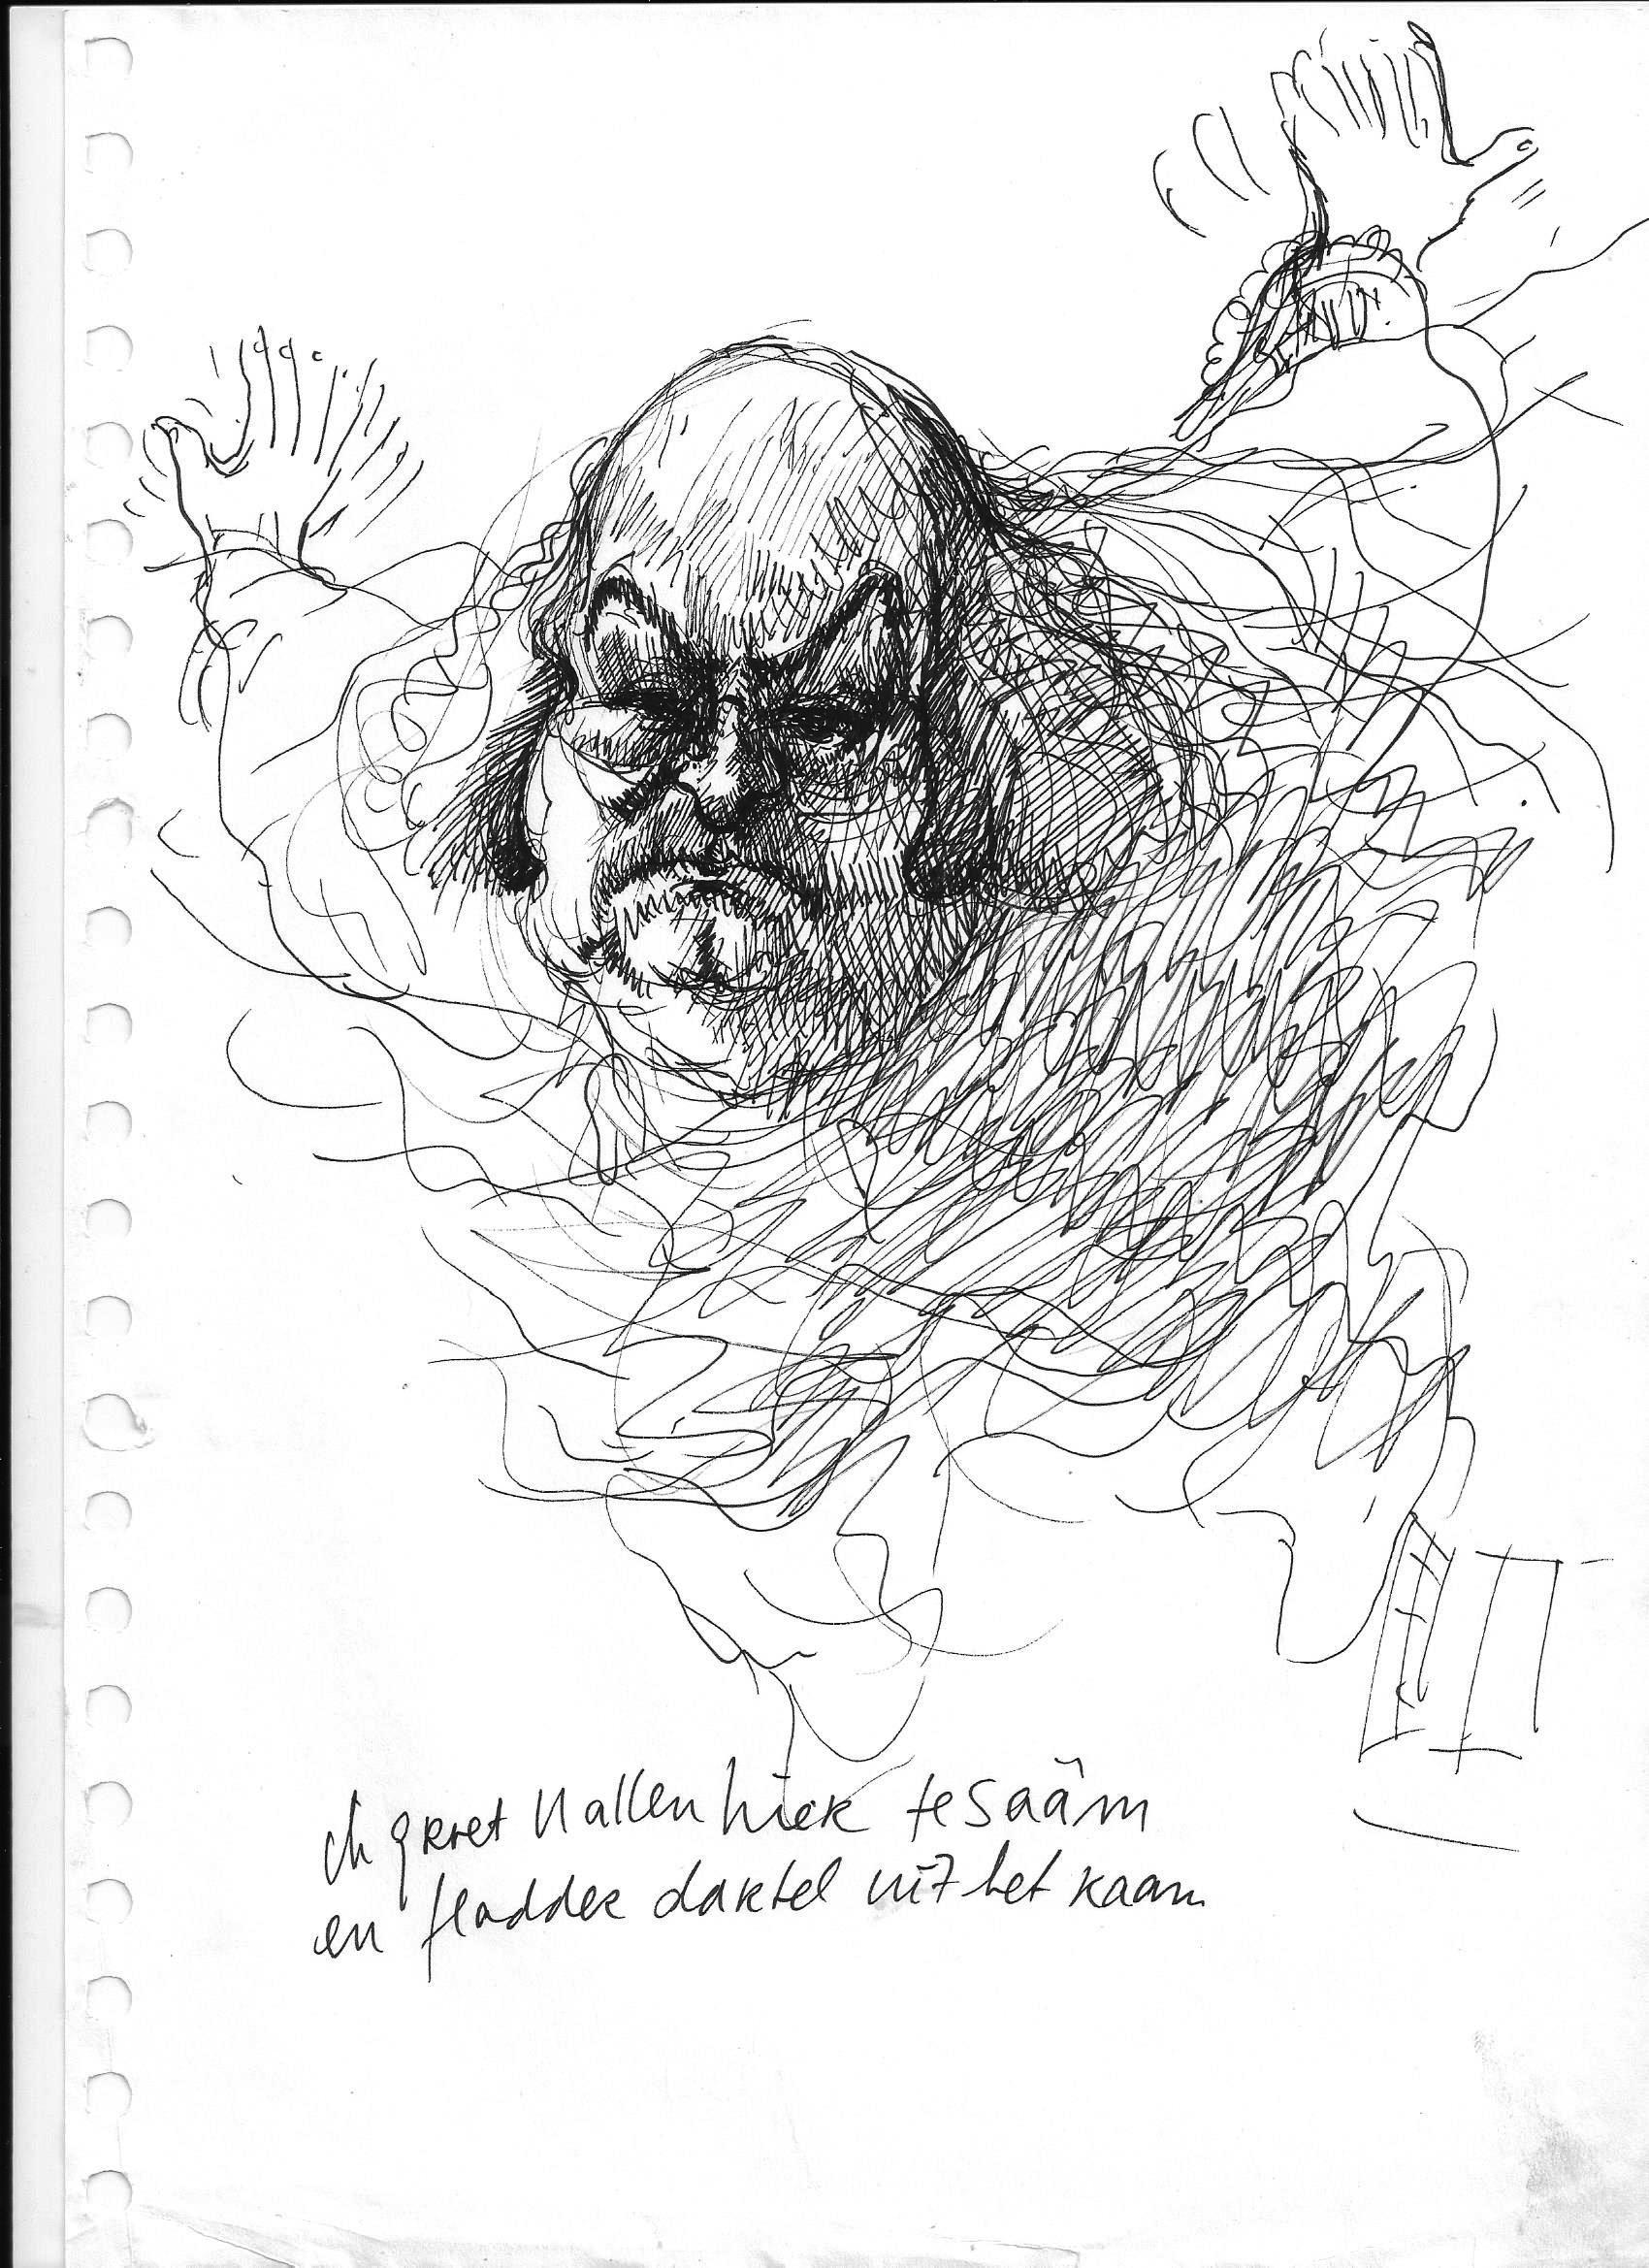 ik groet U allen hier tesaâm
en fladder dartel uit het raam